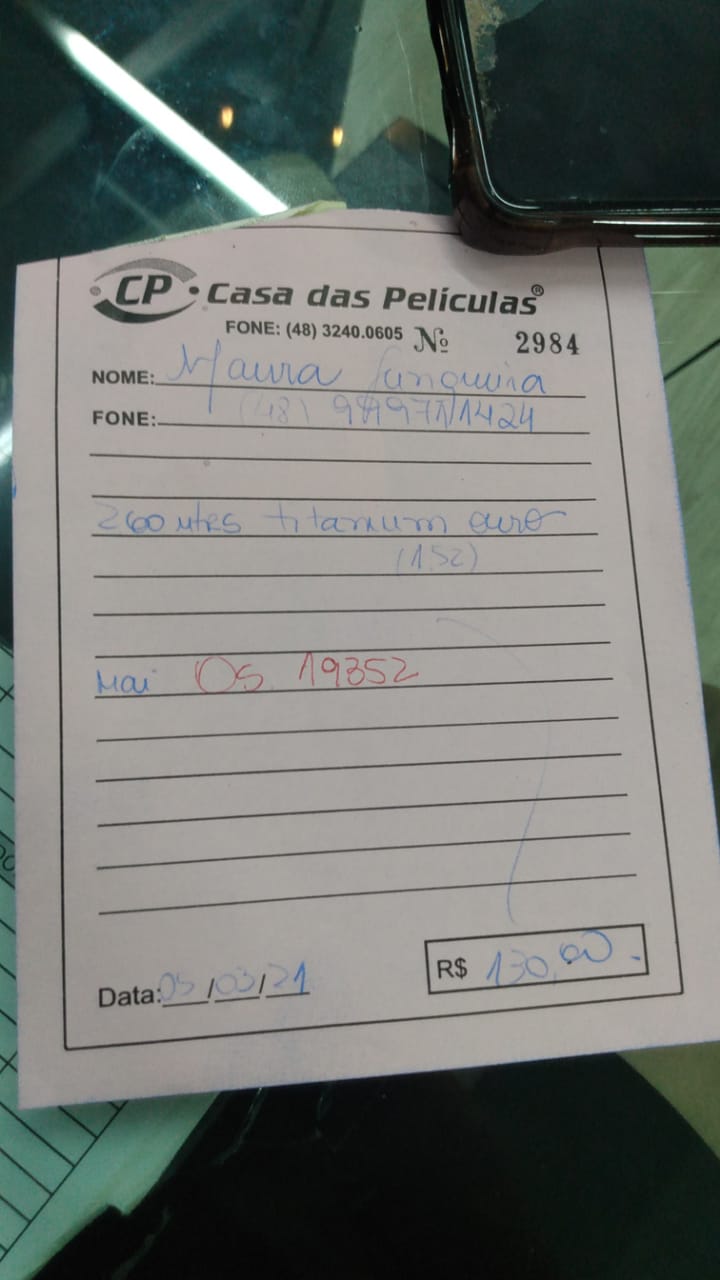 CP Casa das Películas®
FONE: (48) 3240.0605 Nº 2984
NOME: Maura
FONE: (48)
titanium ouro
(1,52)
Mai OS. 19352
Data: 05/03/21
R$ 130,00